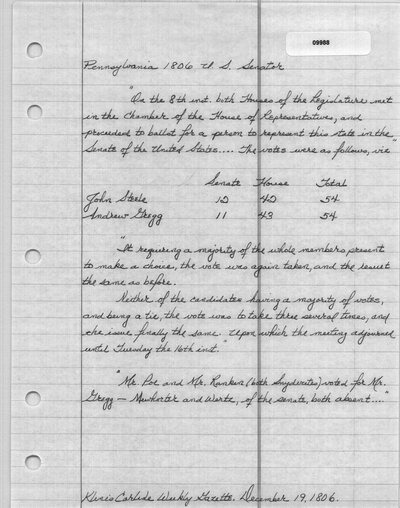 09988
Pennsylvania 1806 U. S. Senator
"On the 8th inst. both Houses of the Legislature met
in the Chamber of the House of Representatives, and
proceeded to ballot for a person to represent this state in the
Senate of the United States.... The votes were as follows, viz"
Senate House Total
John Steele 12 42 54
Andrew Gregg 11 43 54
"It requiring a majority of the whole members present
to make a choice, the vote was again taken, and the result
the same as before.
Neither of the candidates having a majority of votes,
and being a tie, the vote was to take three several times, and
the issue finally the same. Upon which the meeting adjourned
until Tuesday the 16th inst."
"Mr. Poe and Mr. Rankin (both Snyderites) voted for Mr.
Gregg — Mewhorter and Wertz, of the senate, both absent...."
Kline's Carlisle Weekly Gazette. December 19, 1806.